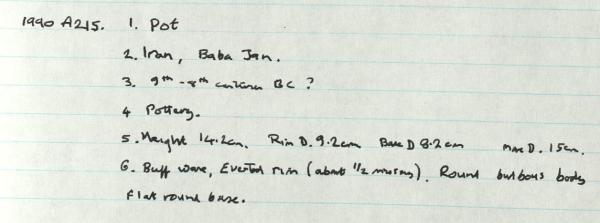 1990 A215. 1. Pot
2. Iran, Baba Jan.
3. 9th - 8th centuries BC ?
4 Pottery.
5. Height 14.2cm. Rim D. 9.2cm Base D 8.2cm Max D. 15cm.
6. Buff ware, Everted rim (about 1/2 missing). Round bulbous body
Flat round base.